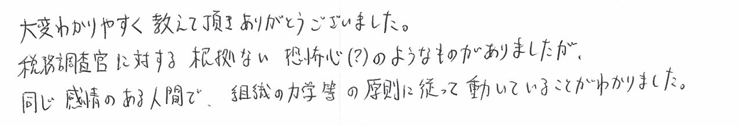 大変わかりやすく教えて頂きありがとうございました。
税務調査官に対する根拠ない恐怖心(?)のようなものがありましたが、
同じ感情のある人間で、組織の力学等の原則に従って動いていることがわかりました。